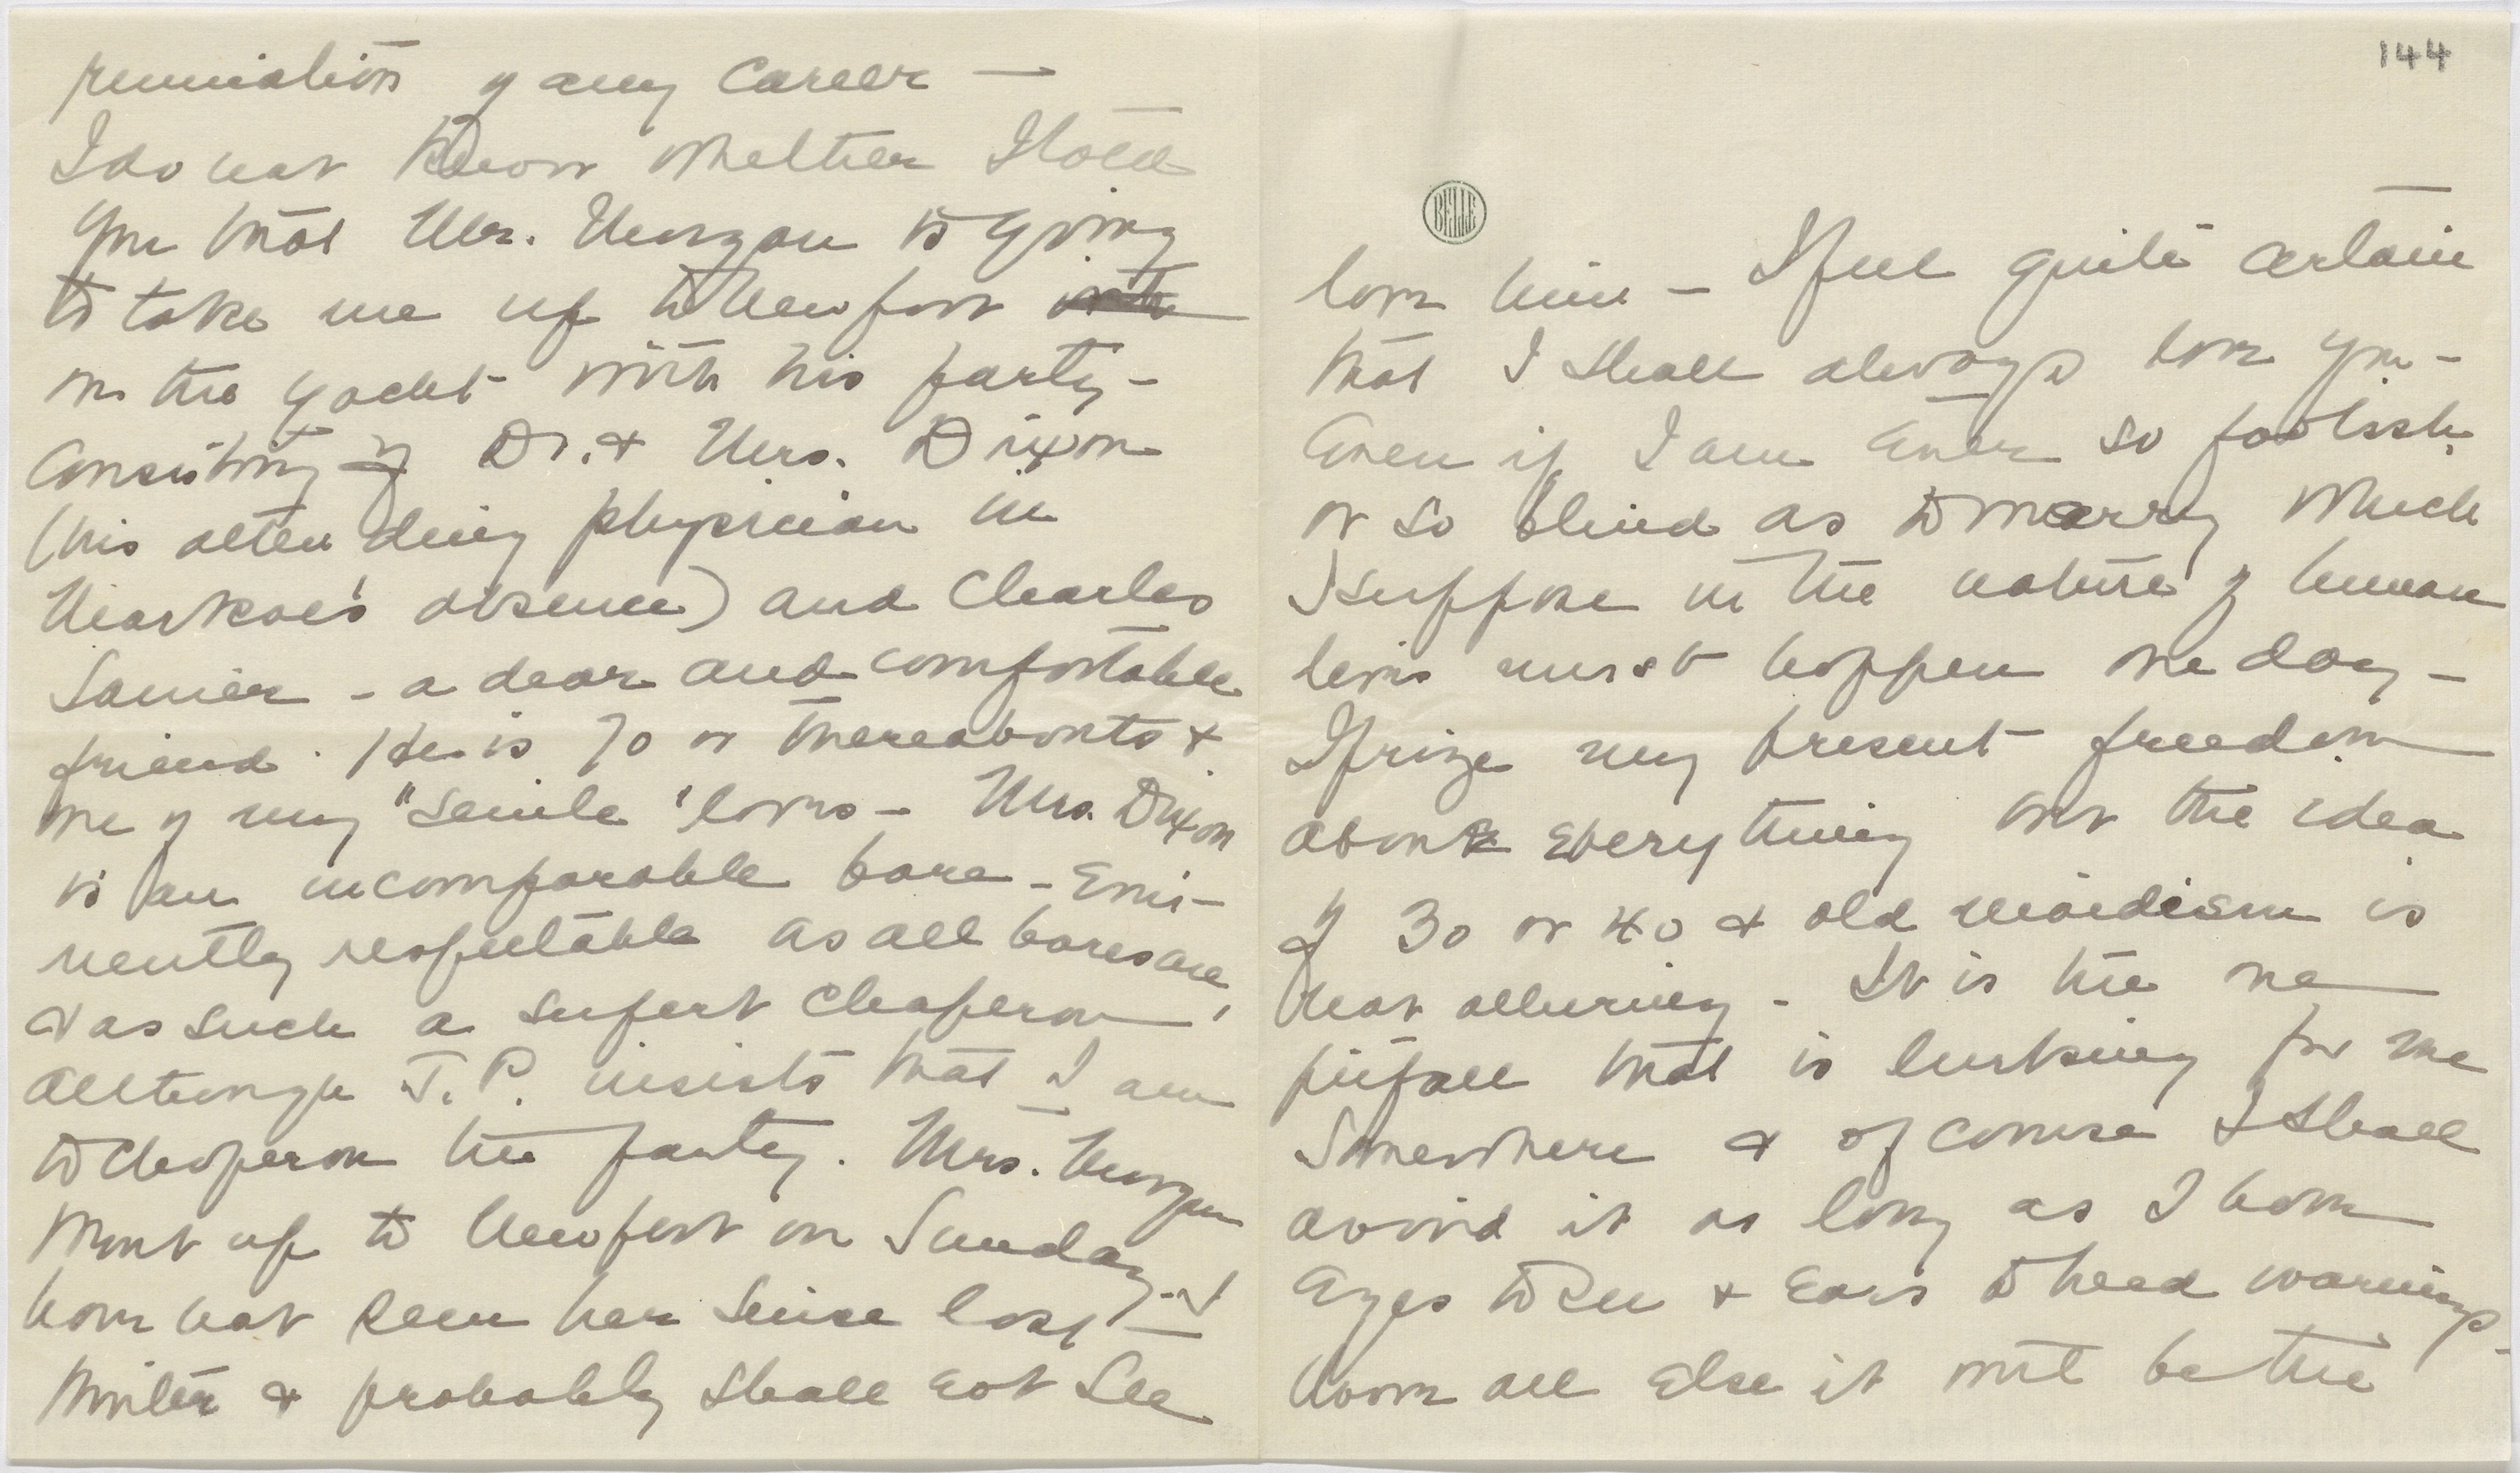 renunciation of any career —
I do not know whether I told
you that Mr. Morgan is going
to take me up to Newport
on the yacht with his party -
Consisting of Dr. & Mrs. Dixon
(his attending physician in
Markoe's absence) and Charles
Lanier - a dear and comfortable
friend. He is 70 or thereabouts &
one of my "senile" loves - Mrs. Dixon
is an incomparable bore - Emi-
nently respectable as all bores are,
& as such a superb chaperon,
although J.P. insists that I am
to chaperon the party. Mrs. Morgan
went up to Newport on Sunday - I
have not seen her since last
Winter & probably shall not see
144
BELLE
love him - I feel quite certain
that I shall always love you -
Even if I am ever so foolish
or so blind as to marry which
I suppose in the nature of human
beings must happen one day -
I prize my present freedom
above everything but the idea
of 30 or 40 & old maidism is
not alluring - It is the one
pitfall that is lurking for me
Somewhere & of course I shall
avoid it as long as I have
Eyes to see & Ears to heed warnings -
Above all else it will be the